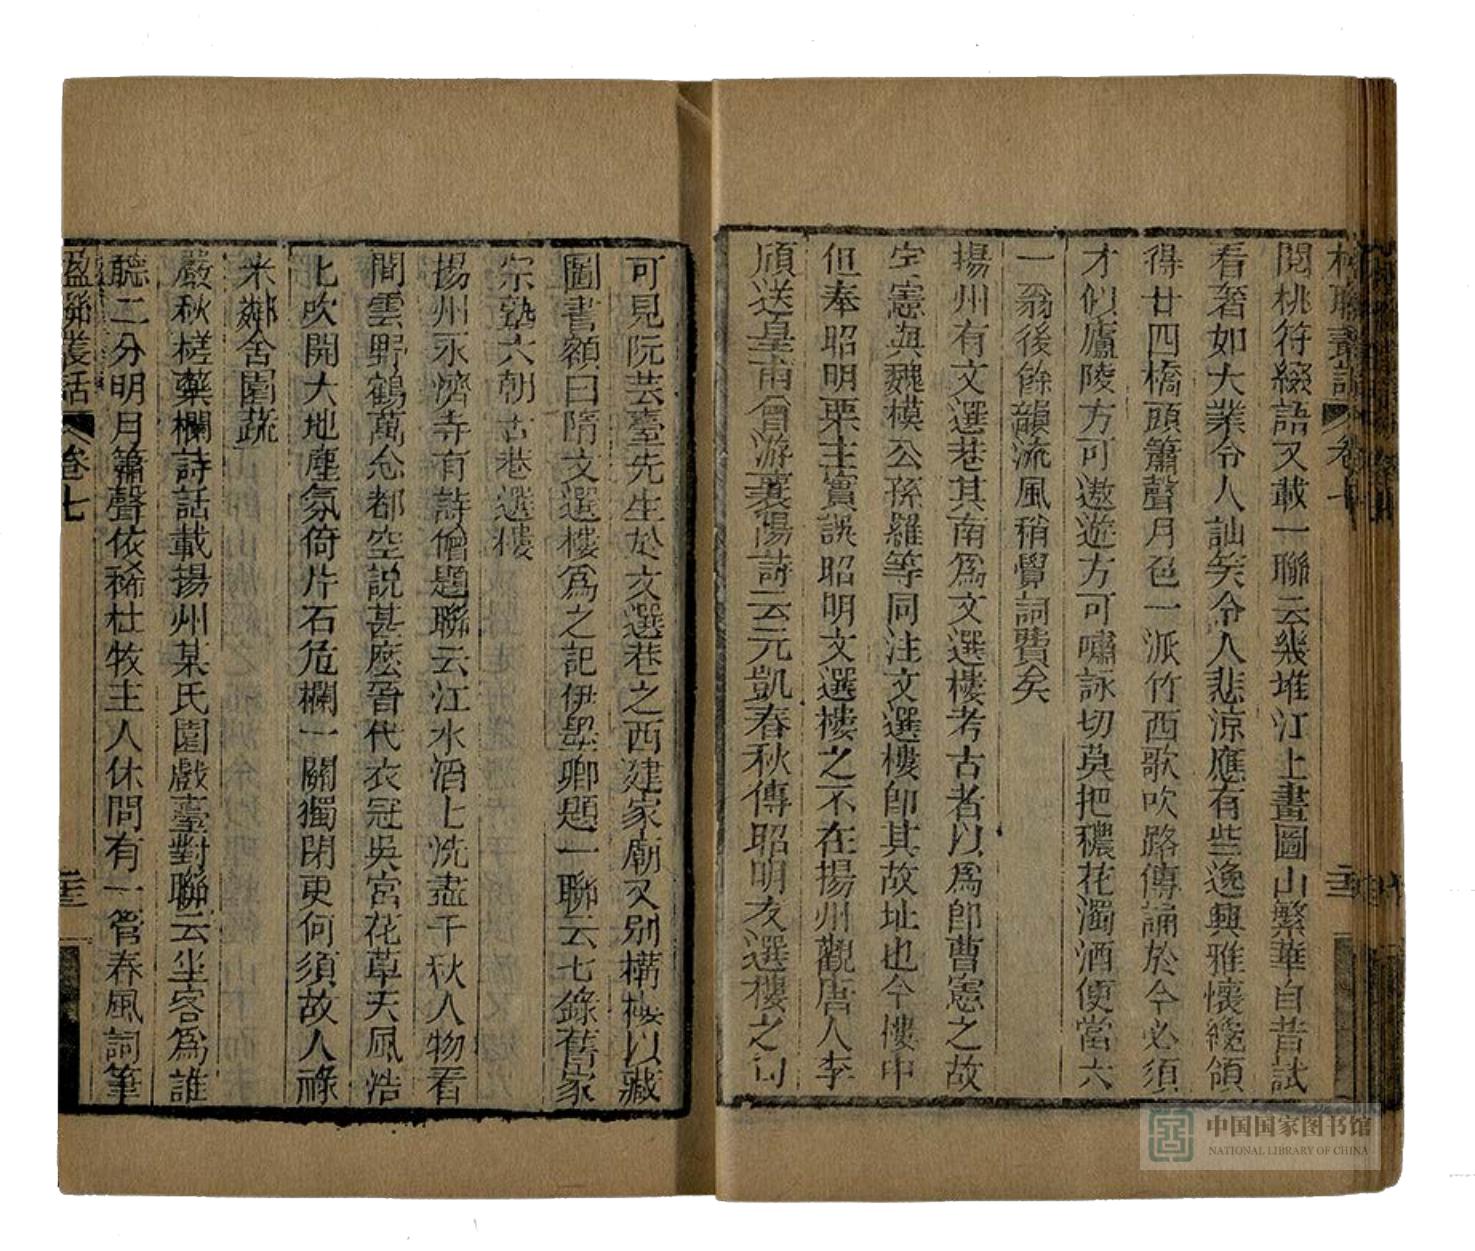 楹聯叢話 卷七 二三
閱桃符綴語又載一聯云幾堆江上畫圖山繁華自昔試
看奢如大業令人訕笑令人悲涼應有些逸興雅懷纔領
得廿四橋頭簫聲月色一派竹西歌吹路傳誦於今必須
才似廬陵方可遨遊方可嘯詠切莫把穠花濁酒便當六
一翁後餘韻流風稍覺詞費矣
揚州有文選巷其南為文選樓考古者以為即曹憲之故
宅憲與魏模公孫羅等同注文選樓即其故址也今樓中
但奉昭明栗主實誤昭明文選樓之不在揚州觀唐人李
頎送皇甫曾游襄陽詩云元凱春秋傳昭明文選樓之句
可見阮芸臺先生於文選巷之西建家廟又別構樓以藏
圖書額曰隋文選樓為之記伊墨卿題一聯云七錄舊家
宗塾六朝古巷選樓
揚州永濟寺有詩僧題聯云江水滔上洗盡千秋人物看
閒雲野鶴萬念都空說甚麽晉代衣冠吳宮花草天風浩
匕吹開大地塵氛倚片石危欄一關獨閉更何須故人祿
米鄰舍園蔬
嚴秋槎藥欄詩話載揚州某氏園戲臺對聯云坐客為誰
聽二分明月簫聲依稀杜牧主人休問有一管春風詞筆
楹聯叢話 卷七 二三
中国国家图书馆
NATIONAL LIBRARY OF CHINA